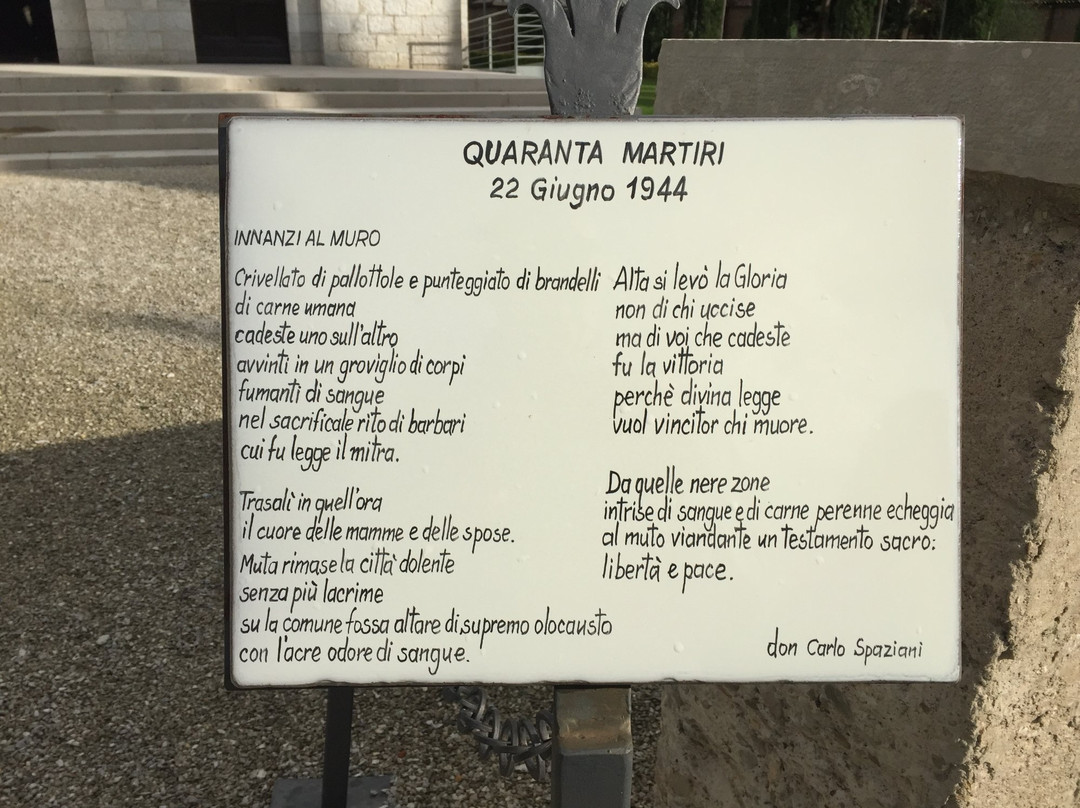 QUARANTA MARTIRI
22 Giugno 1944
INNANZI AL MURO
Crivellato di pallottole e punteggiato di brandelli
di carne umana
cadeste uno sull'altro
avvinti in un groviglio di corpi
fumanti di sangue
nel sacrificale rito di barbari
cui fu legge il mitra.
Trasalì in quell'ora
il cuore delle mamme e delle spose.
Muta rimase la città dolente
senza più lacrime
su la comune fossa altare di supremo olocausto
con l'acre odore di sangue.
Alta si levò la Gloria
non di chi uccise
ma di voi che cadeste
fu la vittoria
perchè divina legge
vuol vincitor chi muore.
Da quelle nere zone
intrise di sangue e di carne perenne echeggia
al muto viandante un Testamento sacro:
libertà e pace.
don Carlo Spaziani